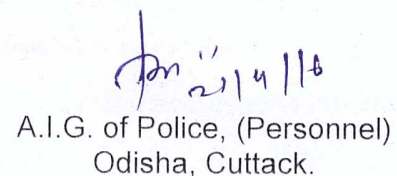 A.I.G. of Police, (Personnel)
Odisha, Cuttack.